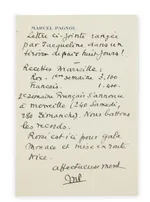 MARCEL PAGNOL
Lettre ci-jointe rangée
par Jacqueline dans un
tiroir depuis huit jours!
Recettes Marseille:
Rex. 1ère semaine 3.100
Français. 1.400
2e semaine Français s'annonce
à merveille (240 Samedi,
280 Dimanche). Nous battons
les records.
Rossi est ici pour gala
Monaco et mise en
Nice.
affectueusement